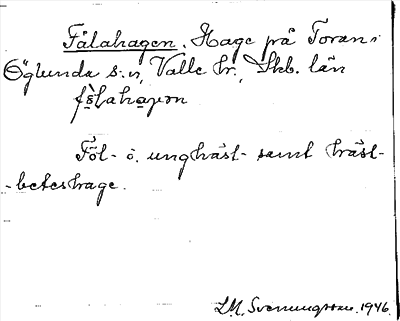 Fålahagen. Hage på Toran i
Öglunda s:n, Valle hr., Skb. län
fə̀lahaɡən
Föl- o. unghäst- samt häst-
-beteshage.
L.M. Svenungsson. 1946.